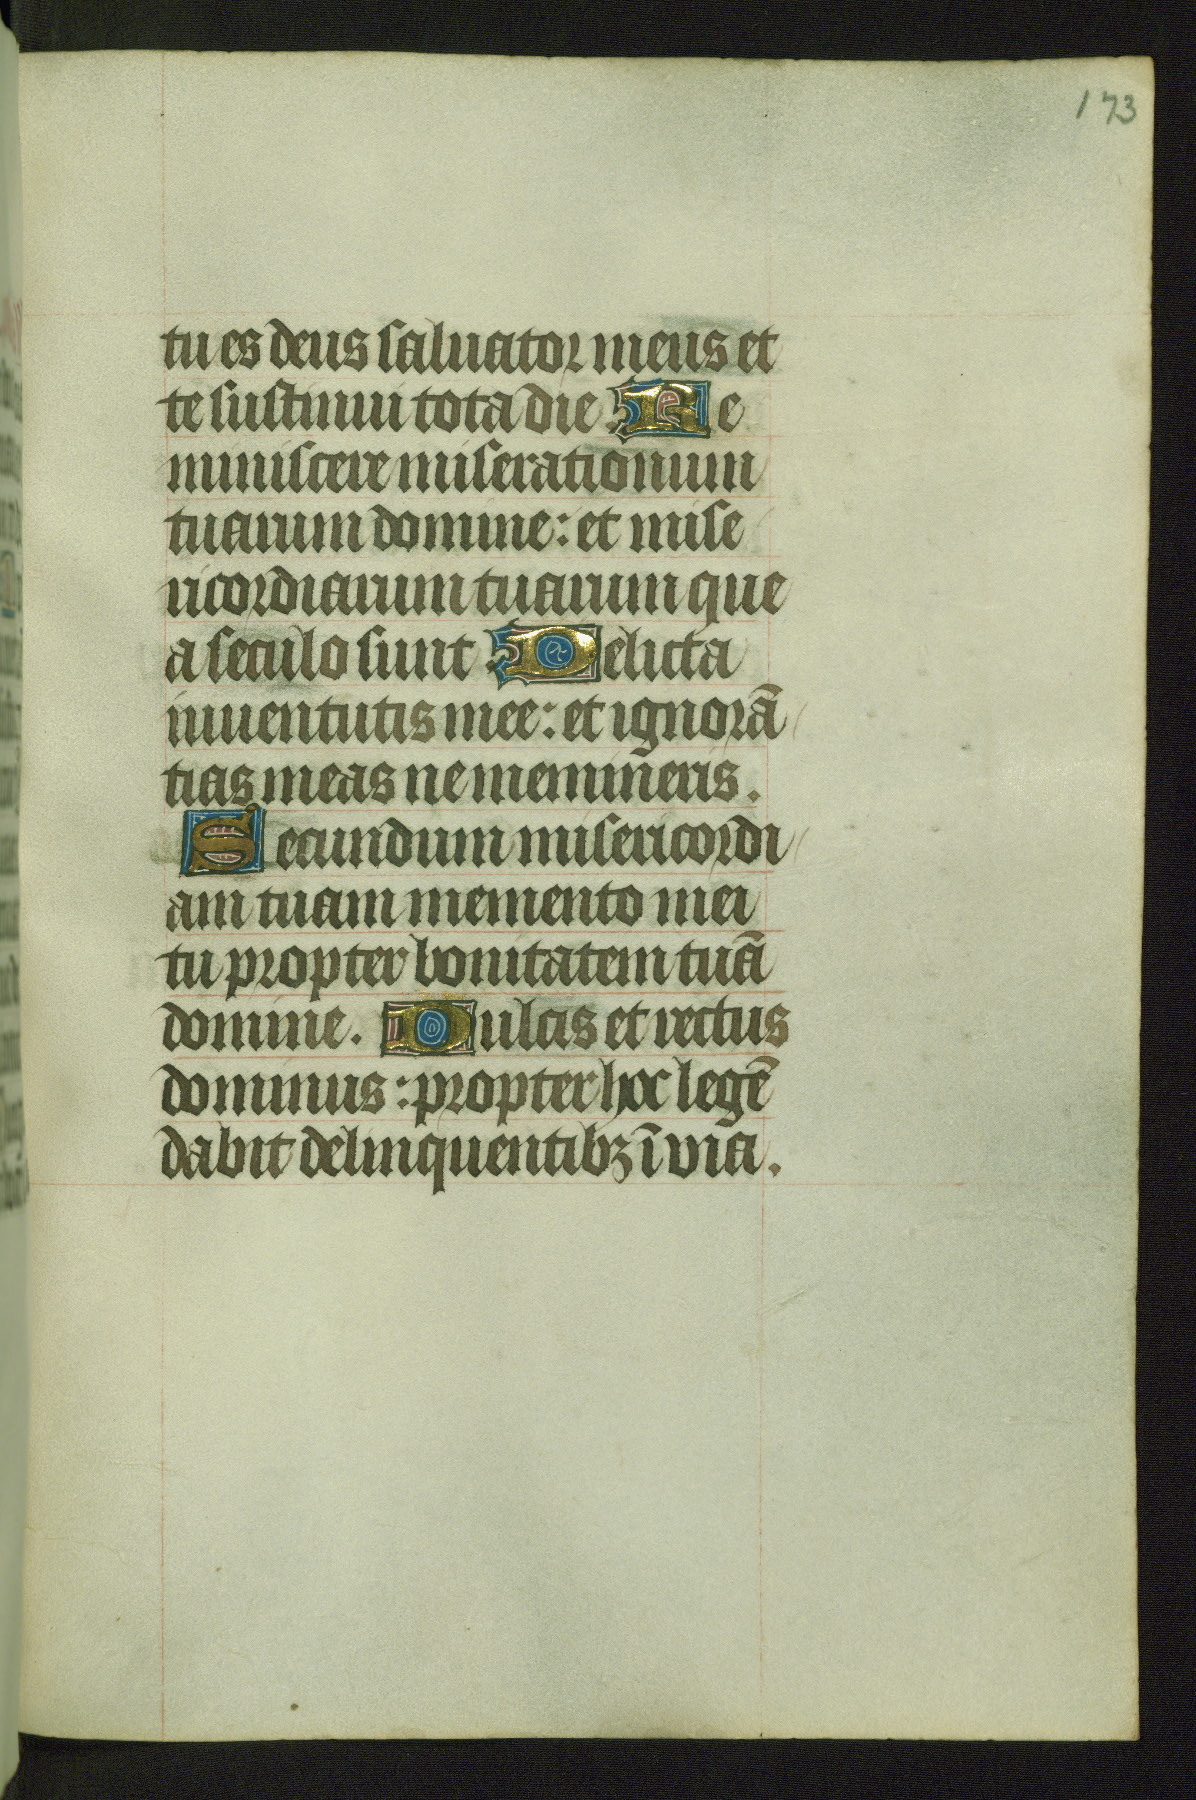 173
tu es deus saluator meus et
te sustinui tota die Re
miniscere miserationum
tuarum domine: et mise
ricordiarum tuarum que
a seculo sunt Delicta
iuuentutis mee: et ignorā
tias meas ne memineris.
Secundum misericordi
am tuam memento mei
tu propter bonitatem tuā
domine. Dulcis et rectus
dominus: propter hoc legē
dabit delinquentibꝫ ī via.